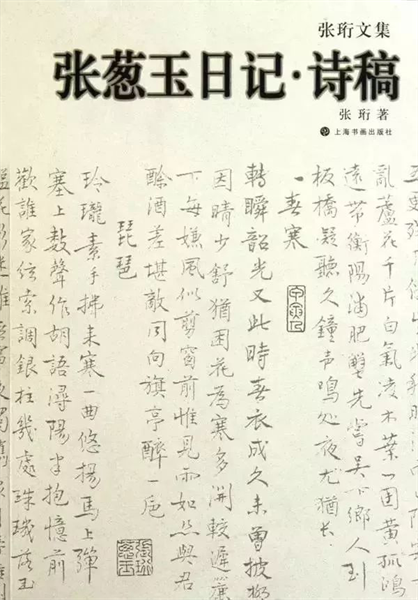 张珩文集
张葱玉日记·诗稿
张 珩 著
上海书画出版社
亂蘆花千片白氣凌木葉一圍黃孤鴻
遠帶衡陽浦肥蟹先嘗吳下鄉人到
板橋凝聽久鐘声鳴处夜尤猶長
春寒
轉瞬韶光又此時春衣成久未曾披柳
因晴少舒猶困花為寒多開較遲簾
下每嫌風似剪窗前惟見雨如絲與君
酴酒差堪敵同向旗亭醉一巵
琵琶
玲瓏素手拂未寒一曲悠揚馬上彈
塞上数聲作胡語潯陽半抱憶前
歡誰家弦索調銀柱幾處珠璣落玉